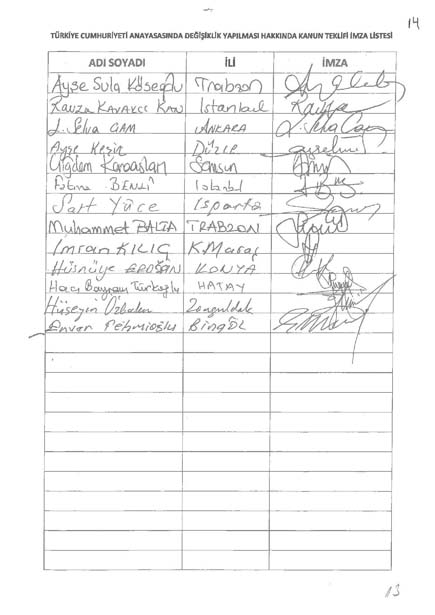 14
TÜRKİYE CUMHURİYETİ ANAYASASINDA DEĞİŞİKLİK YAPILMASI HAKKINDA KANUN TEKLİFİ İMZA LİSTESİ
ADI SOYADI İLİ İMZA
Ayşe Sula Köseoğlu Trabzon
Ravza KAVAKCI KAN İstanbul Ravza
J. Selva ÇAM ANKARA J. Selva Çam
Ayşe Keşir DÜZCE
Çiğdem Karaaslan Samsun
Fatma BENLİ İstanbul
Sait Yüce Isparta
Muhammet BALTA TRABZON
İmran KILIÇ K.Maraş
Hüsnüye ERDOĞAN KONYA
Hacı Bayram Türkoğlu HATAY
Hüseyin Özbakır Zonguldak
Enver Fehmioğlu BİNGÖL
13